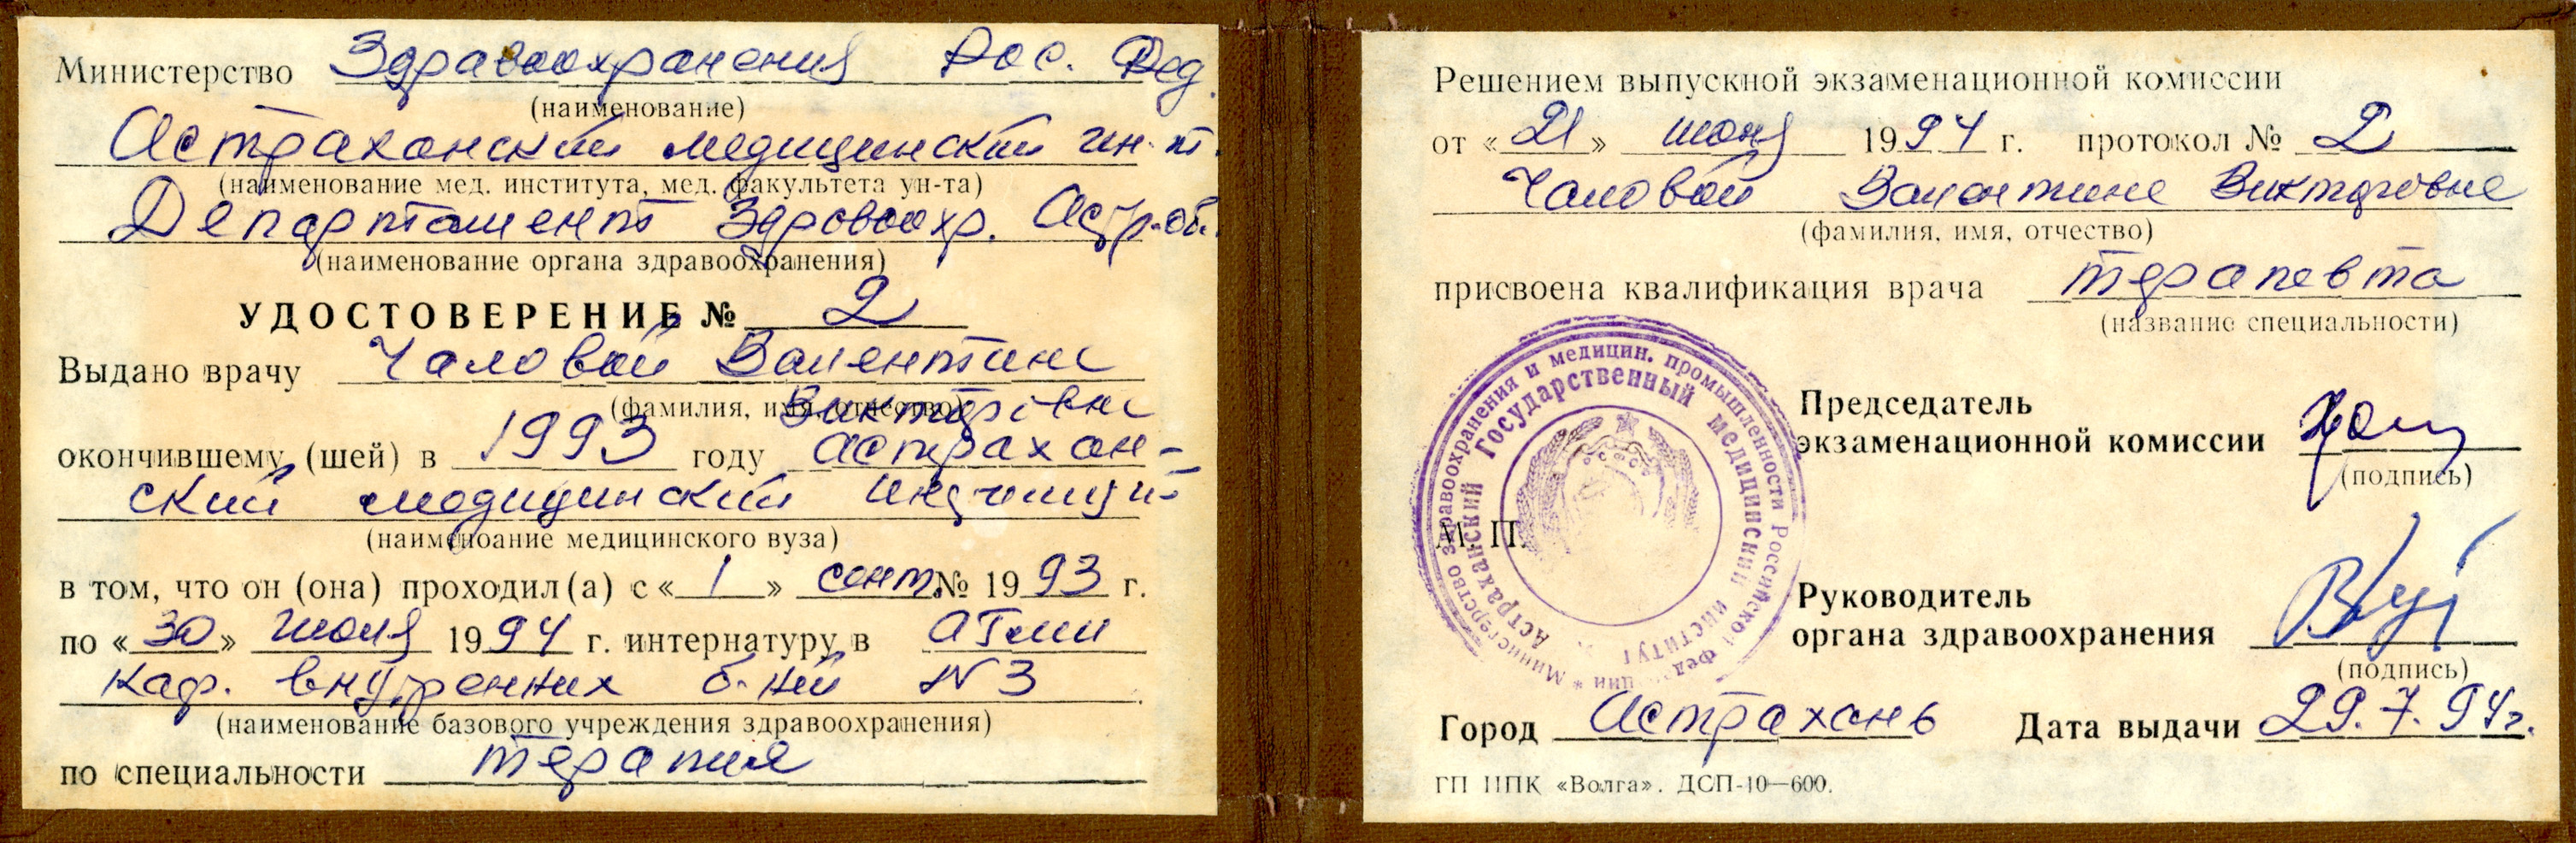 Министерство Здравоохранения Рос. Фед.
(наименование)
Астраханский медицинский ин-т.
(наименование мед. института, мед. факультета ун-та)
Департамент Здравоохр. Астр. об.
(наименование органа здравоохранения)
УДОСТОВЕРЕНИЕ № 2
Выдано врачу Чаловой Валентине
(фамилия, имя, отчество)
Викторовне
окончившему (шей) в 1993 году Астрахан-
ский медицинский
(наименоание медицинского вуза)
в том, что он (она) проходил(а) с «1» сент. № 1993 г.
по «30» июля 1994 г. интернатуру в АГМИ
каф. внутренних б-ний N 3
(наименование базового учреждения здравоохранения)
по специальности терапия
Решением выпускной экзаменационной комиссии
от «21» июня 1994 г. протокол № 2
Чаловой Валентине Викторовне
(фамилия, имя, отчество)
присвоена квалификация врача терапевта
(название специальности)
Председатель
экзаменационной комиссии
(подпись)
М. П.
Министерство здравоохранения и медицин. промышленности Российской Федерации *
Астраханский Государственный медицинский институт
Руководитель
органа здравоохранения
(подпись)
Город Астрахань Дата выдачи 29.7.94г.
ГП ИПК «Волга». ДСП-10—600.